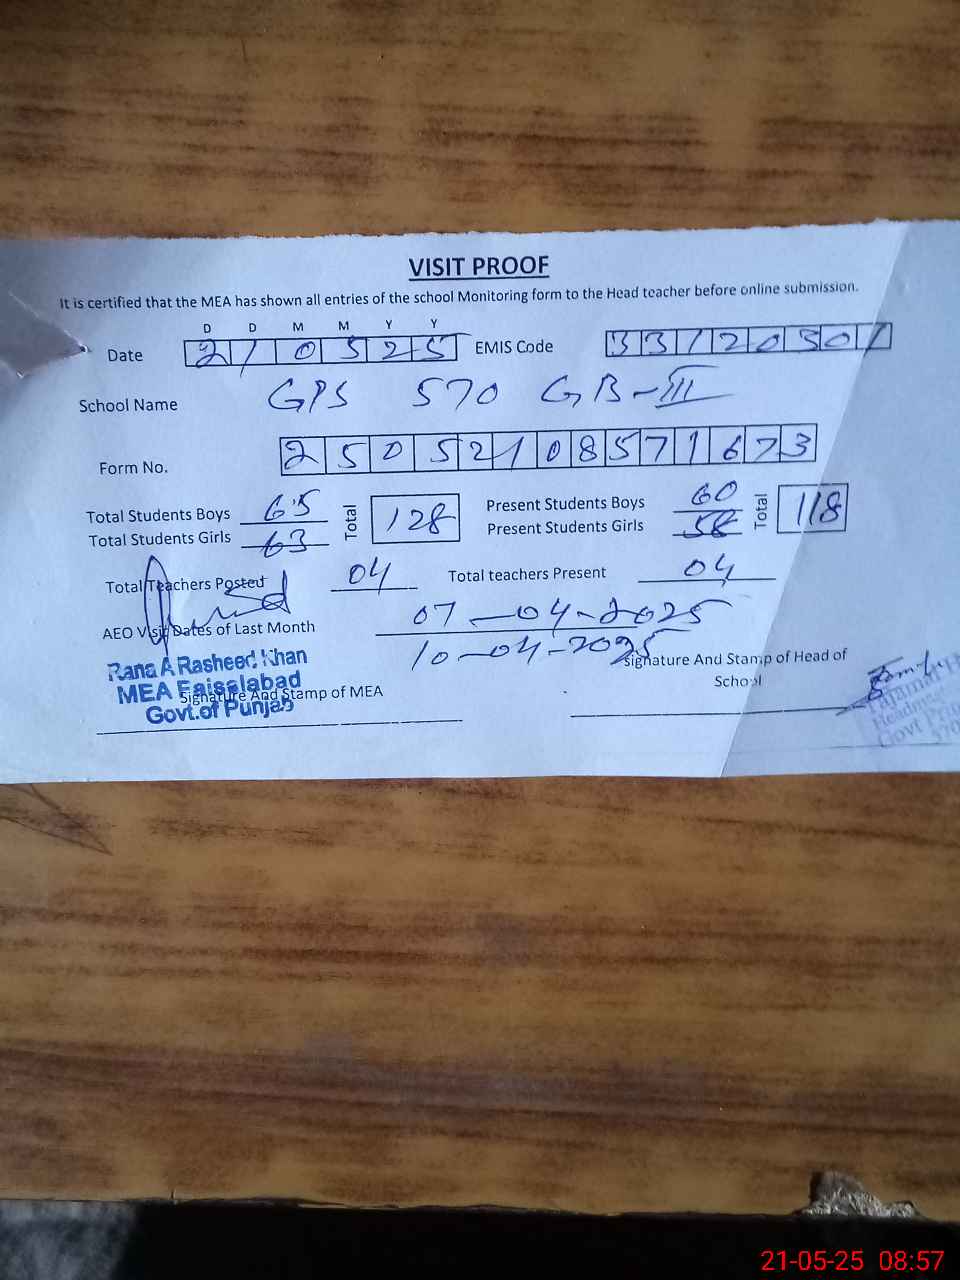 VISIT PROOF
It is certified that the MEA has shown all entries of the school Monitoring form to the Head teacher before online submission.
D D M M Y Y
Date 2 1 0 5 2 5 EMIS Code 3 3 1 2 0 3 0 1
School Name GPS 570 GB-III
Form No. 2 5 0 5 2 1 0 8 5 7 1 6 7 3
Total Students Boys 65 Total 128 Present Students Boys 60 Total 118
Total Students Girls 63 Present Students Girls 58
Total Teachers Posted 04 Total teachers Present 04
AEO Visit Dates of Last Month 07-04-2025
10-04-2025
Signature And Stamp of Head of School
Rana A Rasheed Khan
MEA Faisalabad
Govt.of Punjab
Signature And Stamp of MEA
Govt
570
21-05-25 08:57